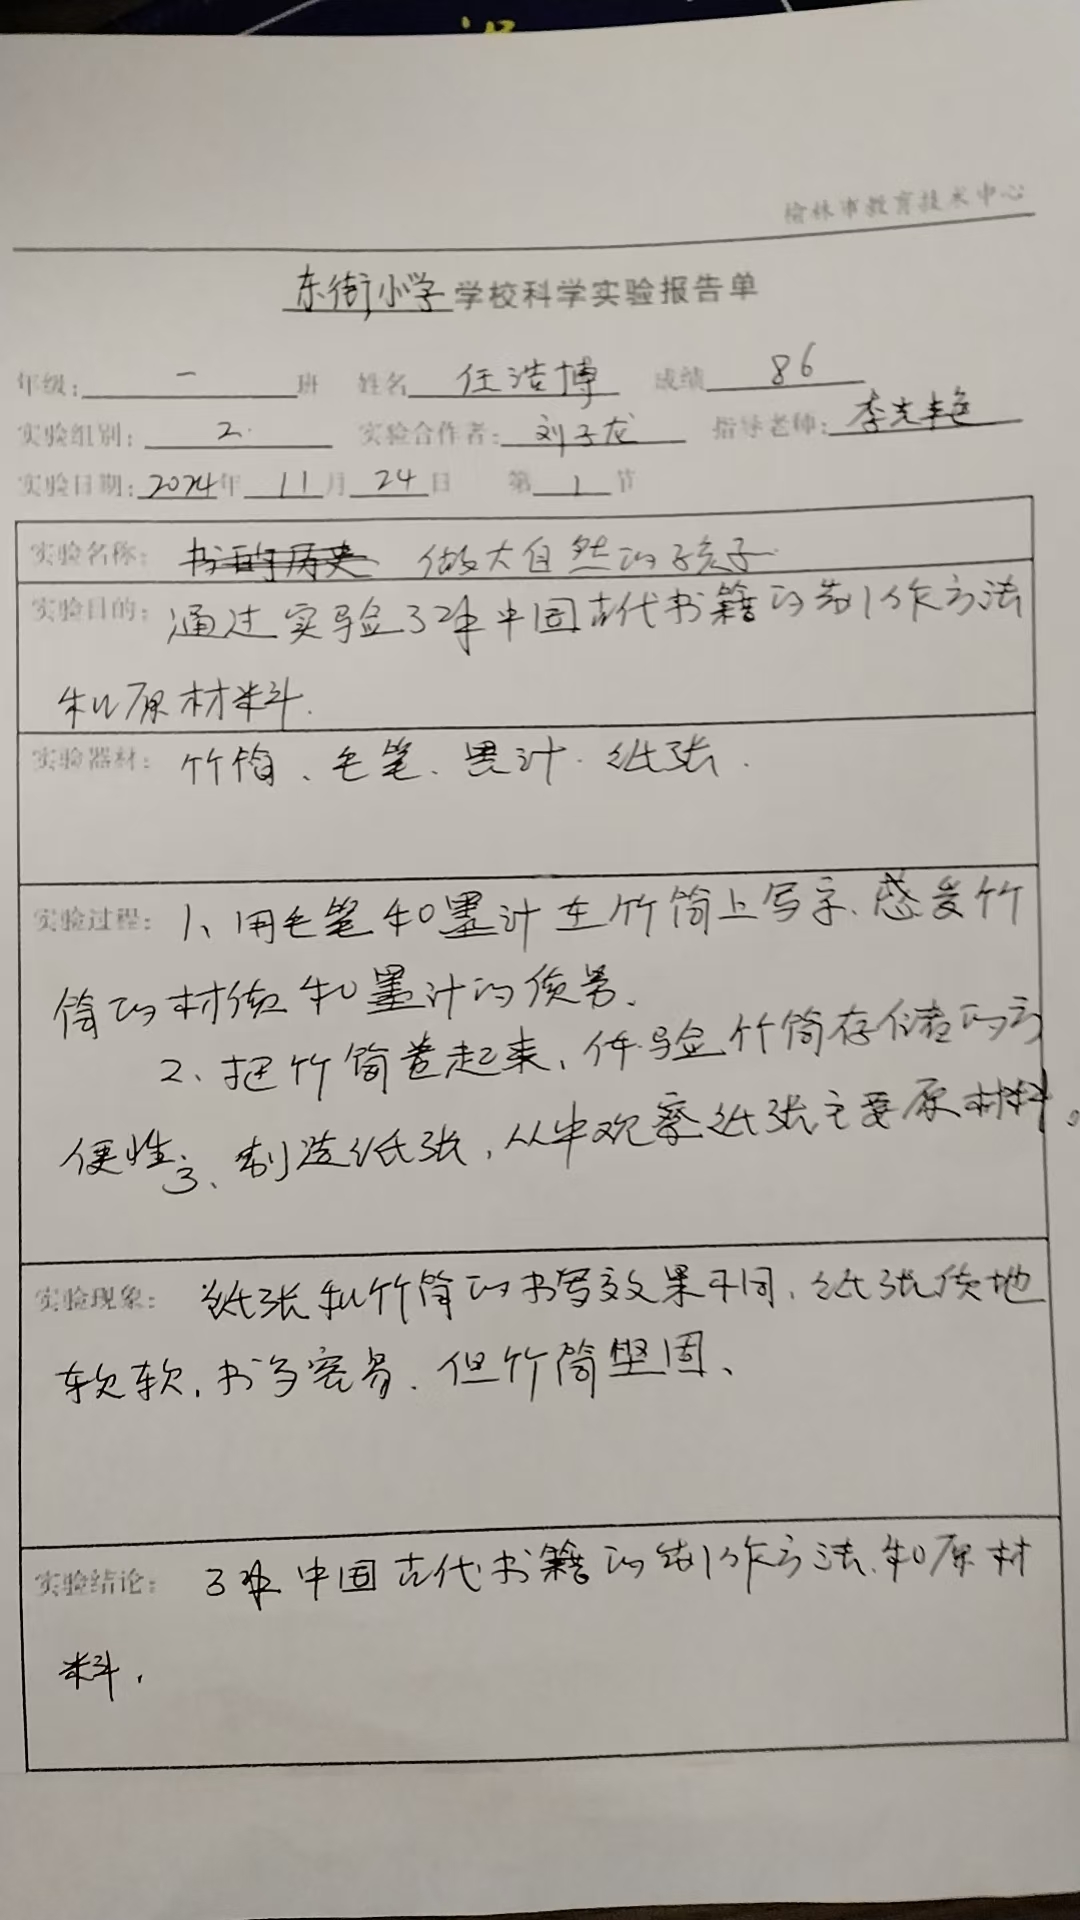 榆林市教育技术中心
东街小学学校科学实验报告单
年级: 一 班 姓名 任浩博 成绩 86
实验组别: 2. 实验合作者: 刘子龙 指导老师: 李艳
实验日期: 2024年 11月 24日 第 1 节
实验名称: 书的历史 做大自然的孩子
实验目的: 通过实验了解中国古代书籍的制作方法
和原材料.
实验器材: 竹简、毛笔、墨汁. 纸张.
实验过程: 1、用毛笔和墨汁在竹简上写字、感受竹
简的材质和墨汁的质量、
2、把竹简卷起来、体验竹简存储的方
便性; 3、制造纸张,从中观察纸张主要原材料。
实验现象: 纸张和竹简的书写效果不同、纸张质地
软软,书写容易、但竹简坚固、
实验结论: 了解中国古代书籍的制作方法、和原材
料.